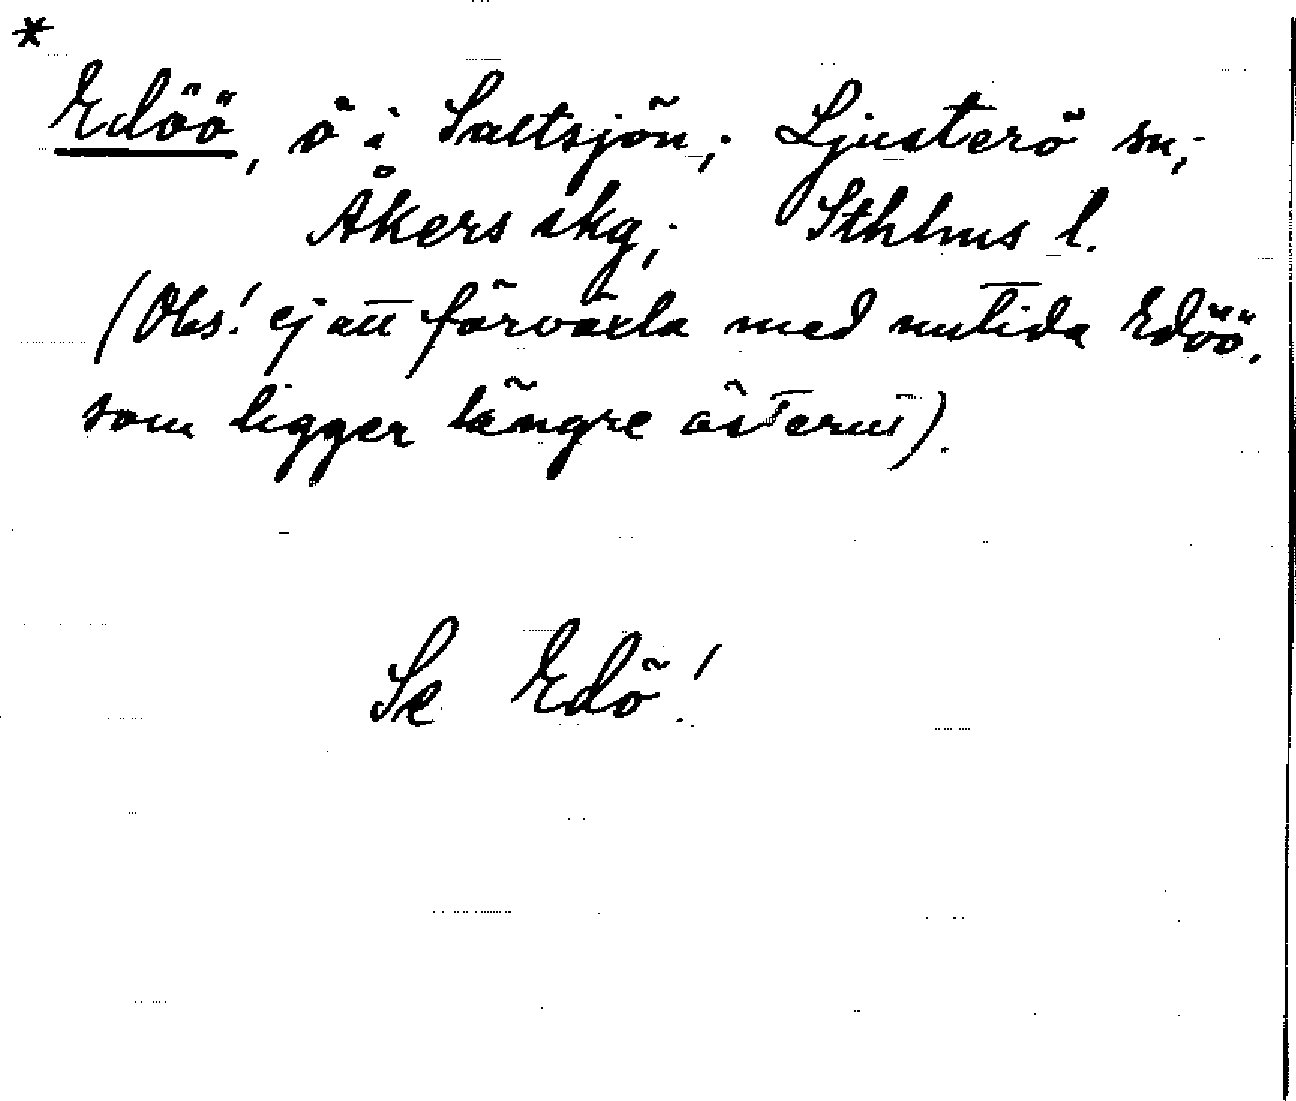 *
Edöö, ö i Saltsjön; Ljusterö sn;
Åkers skg; Sthlms l.
(Obs! ej att förväxla med nutida Edöö,
som ligger längre österut).
Se Edö!